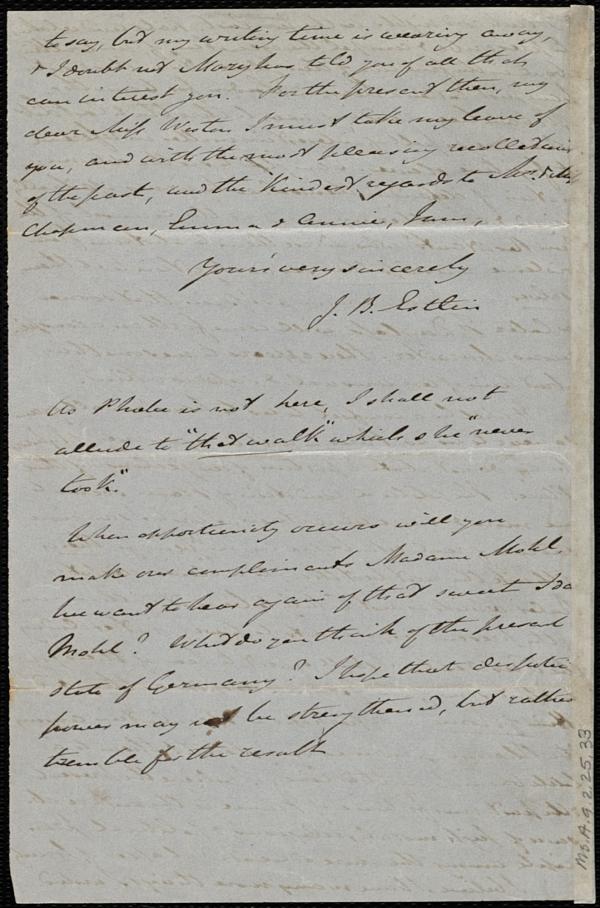 to say, but my writing time is wearing away,
& I doubt not Mary has told you of all that
can interest you. For the present then, my
dear Miss Weston I must take my leave of
you, and with the most pleasing recollections
of the past, and the kindest regards to Mrs.
Chapman, Emma & Annie, I am,
Yours very sincerely
J. B. Estlin
As Phoebe is not here, I shall not
allude to "that walk" which she "never
took."
When opportunity occurs will you
make our compliments Madame Mohl,
we want to hear again of that sweet Ida
Mohl? What do you think of the present
state of Germany? I hope that despotic
power may not be strengthened, but rather
tremble for the result
Ms.A.9.2.25.33